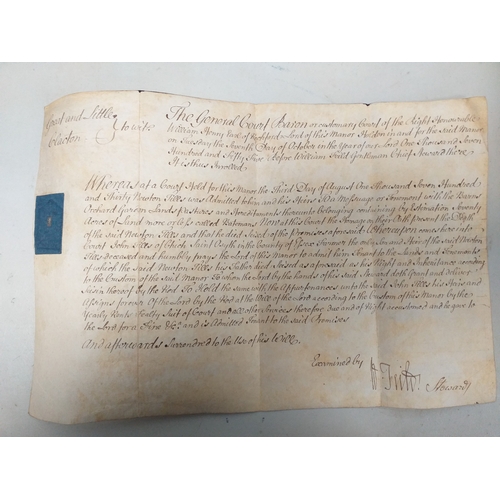 Great and Little
Clacton
to wit
The General Court Baron or customary Court of the Right Honourable
William Henry Earl of Rochford Lord of this Manor Holden in and for the said Manor
on Tuesday the Seventh Day of October in the Year of our Lord One Thousand Seven
Hundred and Fifty before William Gentleman Chief Steward there
It is thus Inrolled
Whereas at a Court Held for this Manor the Third Day of August One Thousand Seven Hundred
and Thirty Newton was Admitted to him and his Heirs To a Messuage or Tenement with the Barns
Orchard Gardens Lands Pastures and Hereditaments thereunto belonging containing by Estimation Seventy
Acres of Land more or less called Batemans Now at this Court the Homage on their Oath present the Death
of the said Newton and that he died Seized of the Premises aforesaid Thereupon comes here into
Court John of Chich Saint Osyth in the County of Essex the only Son and Heir of the said Newton
deceased and humbly prays the Lord of this Manor to admit him Tenant to the Lands and Tenements
of which the said Newton his Father died Seized as aforesaid as his Right and Inheritance according
to the Custom of this Manor To whom the Lord by the hands of his said Steward doth Grant and deliver
Seisin thereof by the Rod To Hold the same with the Appurtenances unto the said John his Heirs and
Assigns forever Of the Lord by the Rod at the Will of the Lord according to the Custom of this Manor by the
Yearly Rents Fealty Suit of Court and all other Services therefore due and of Right accustomed and he gave to
the Lord for a Fine &c: and is Admitted Tenant to the said Premises
And afterwards Surrendred to the Use of his Will.
Examined by
Steward